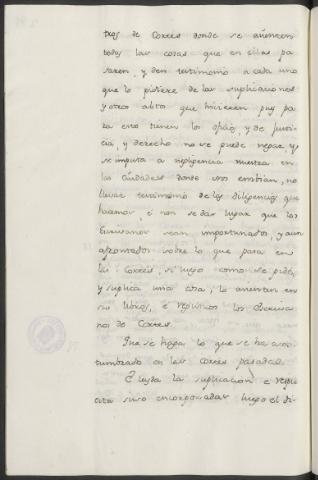 tros de Cortes donde se asienten
todas las cosas que en ellas pa
saren, y den testimonio a cada uno
que lo pidiere de las suplicaciones
y otros autos que hicieren pues pa
ra esto tienen los ofiçios, y de justi
cia, y derecho no se puede negar y
se imputa a negligencia nuestra en
las ciudades donde nos embian, no
llevar testimonio de las diligencias que
hacemos, é non se dar lugar que los
Escrivanos sean importunados, y aun
afrontados sobre lo que pasa en
las Cortes, si luego como se pide,
y suplica una cosa, lo asientan en
sus libros, é registros los Escriva
nos de Cortes.
Que se haga lo que se ha acos
tumbrado en las Cortes pasadas.
E leyda la suplicacion e respu
esta suso encorporadas luego el di-